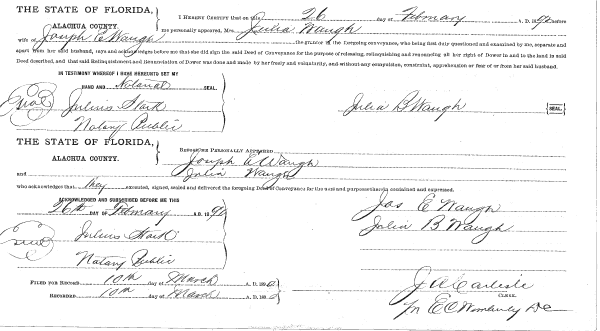 THE STATE OF FLORIDA,
ALACHUA COUNTY.
I HEREBY CERTIFY that on this 26 day of February A. D. 1890 before
me personally appeared, Mrs. Julia Waugh
wife of Joseph E Waugh the grantor in the foregoing conveyance, who being first duly questioned and examined by me, separate and
apart from her said husband, says and acknowledges before me that she did sign the said Deed of Conveyance for the purpose of releasing, relinquishing and renouncing all her right of Dower in and to the land in said
Deed described, and that said Relinquishment and Renunciation of Dower was done and made by her freely and voluntarily, and without any compulsion, constraint, apprehension or fear of or from her said husband.
IN TESTIMONY WHEREOF I HAVE HEREUNTO SET MY
HAND AND Notarial SEAL.
Seal Julius Stark
Notary Public
Julia B Waugh SEAL.
THE STATE OF FLORIDA,
ALACHUA COUNTY.
BEFORE ME PERSONALLY APPEARED
Joseph E Waugh
and Julia Waugh
who acknowledges that they executed, signed, sealed and delivered the foregoing Deed of Conveyance for the uses and purposes therein contained and expressed.
ACKNOWLEDGED AND SUBSCRIBED BEFORE ME THIS
26th DAY OF February A. D. 1890
Seal Julius Stark
Notary Public
Jos E Waugh
Julia B Waugh
FILED FOR RECORD 10th day of March A. D. 1890
RECORDED 10th day of March A. D. 1890
J A Carlisle
CLERK.
Pr E C Wimberly D C